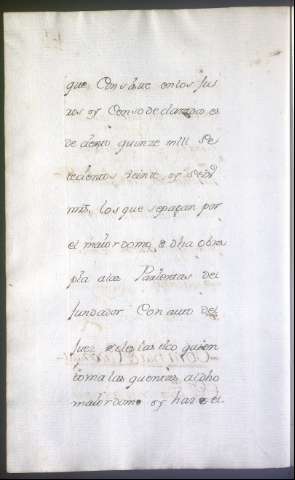 que Consta se en los Jui
zos y Censo declarado es
de ciento quinze mill se
tecientos Veinte y seis
mrs, los que se pagan por
el maiordomo de dha obra
pia a las Parientas del
fundador Con auto del
Juez eclesiastico quien
toma las quentas al dho
maiordomo y haze el